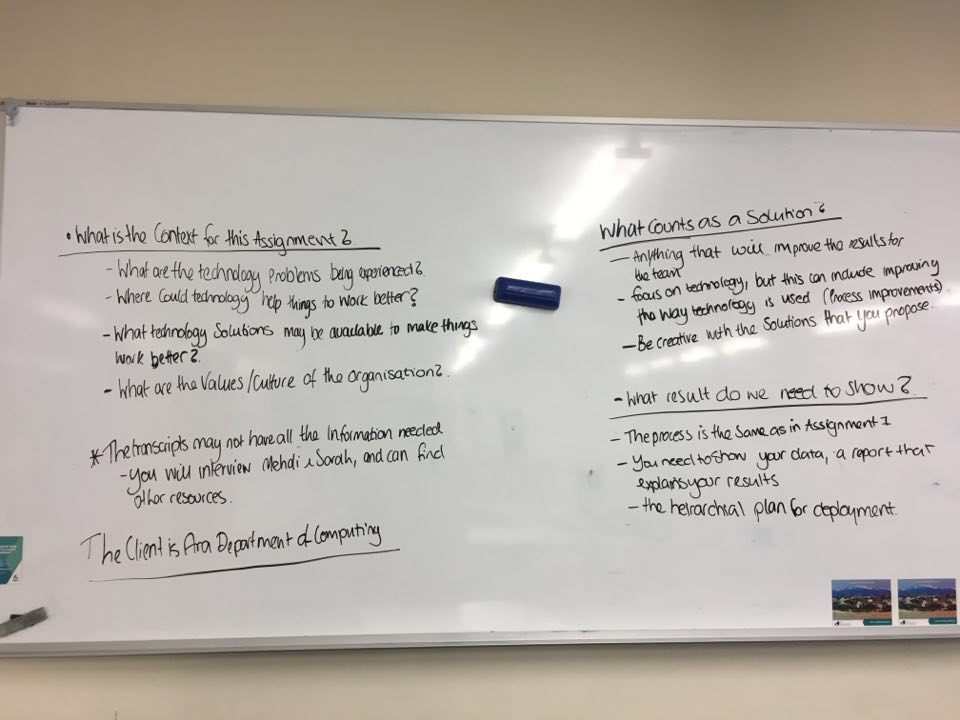 • What is the Context for this Assignment?
- What are the technology problems being experienced?
- Where Could technology help things to work better?
- What technology Solutions may be available to make things
work better?
- What are the Values/Culture of the organisation?
* The transcripts may not have all the Information needed
- You will interview Mehdi & Sarah, and can find
other resources.
The Client is Ara Department of Computing
What Counts as a Solution?
- Anything that will improve the results for
the team
- focus on technology, but this can include improving
the way technology is used (Process improvements).
- Be creative with the Solutions that you propose.
- What result do we need to show?
- The process is the Same as in Assignment 1
- You need to show your data, a report that
explains your results
- the heirarchial plan for deployment.